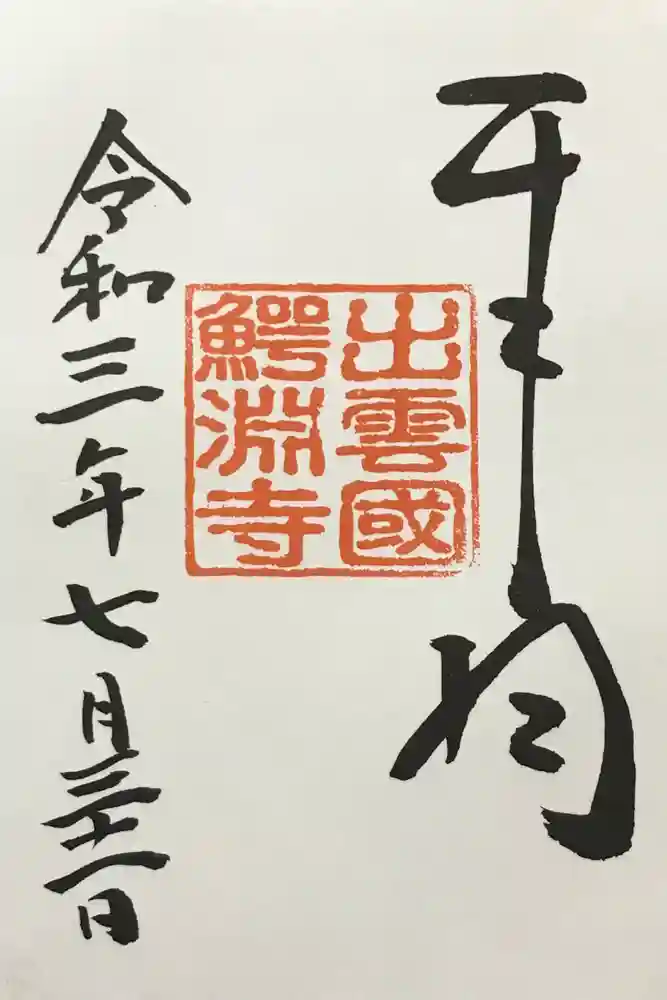 出雲國
鰐淵寺
令和三年七月三十一日